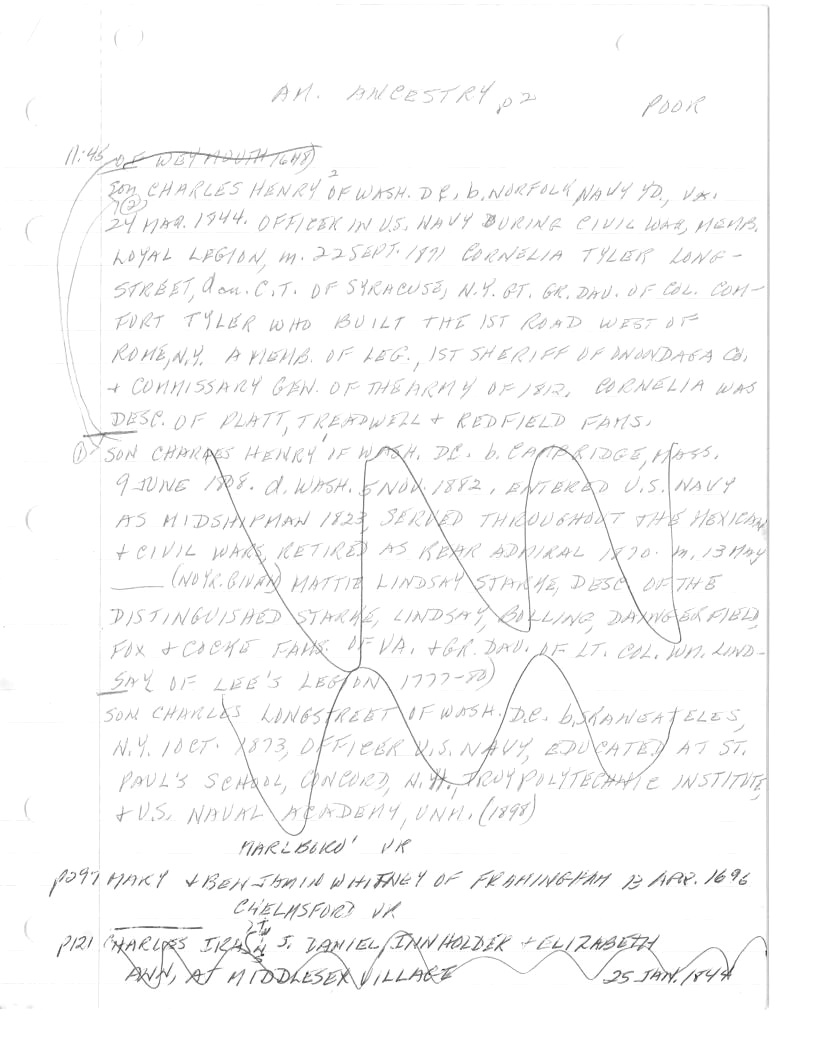 AM. ANCESTRY p2 POOR
11:45 OF WEYMOUTH 1648)
SON CHARLES HENRY 2 OF WASH. DC. b. NORFOLK NAVY YD., VA.
(2)
24 MAR. 1844. OFFICER IN U.S. NAVY DURING CIVIL WAR, MEMB.
LOYAL LEGION, m. 22 SEPT. 1871 CORNELIA TYLER LONG-
STREET, dau. C.T. OF SYRACUSE, N.Y. GT. GR. DAU. OF COL. COM-
FORT TYLER WHO BUILT THE 1ST ROAD WEST OF
ROME, N.Y. A MEMB. OF LEG., 1ST SHERIFF OF ONONDAGA CO.
+ COMMISSARY GEN. OF THE ARMY OF 1812. CORNELIA WAS
DESC. OF PLATT, TREADWELL + REDFIELD FAMS.
(1) SON CHARLES HENRY 1 OF WASH. DC. b. CAMBRIDGE, MASS.
9 JUNE 1808. d. WASH. 5 NOV. 1882, ENTERED U.S. NAVY
AS MIDSHIPMAN 1823, SERVED THROUGHOUT THE MEXICAN
+ CIVIL WARS, RETIRED AS REAR ADMIRAL 1870. m. 13 MAY
____ (NO YR. GIVEN) MATTIE LINDSAY STARKE, DESC OF THE
DISTINGUISHED STARKE, LINDSAY, BOLLING, DAINGERFIELD,
FOX + COCKE FAMS. OF VA. + GR. DAU. OF LT. COL. WM. LIND-
SAY OF LEE'S LEGION 1777-80)
SON CHARLES LONGSTREET OF WASH. D.C. b. SKANEATELES,
N.Y. 1 OCT. 1873, OFFICER U.S. NAVY, EDUCATED AT ST.
PAUL'S SCHOOL, CONCORD, N.H., TROY POLYTECHNIC INSTITUTE,
+ U.S. NAVAL ACADEMY, UNM. (1898)
MARLBORO' VR
p297 MARY + BENJAMIN WHITNEY OF FRAMINGHAM 13 APR. 1696
CHELMSFORD VR
p121 CHARLES IRA S. DANIEL, INNHOLDER + ELIZABETH
ANN, AT MIDDLESEX VILLAGE 25 JAN. 1844